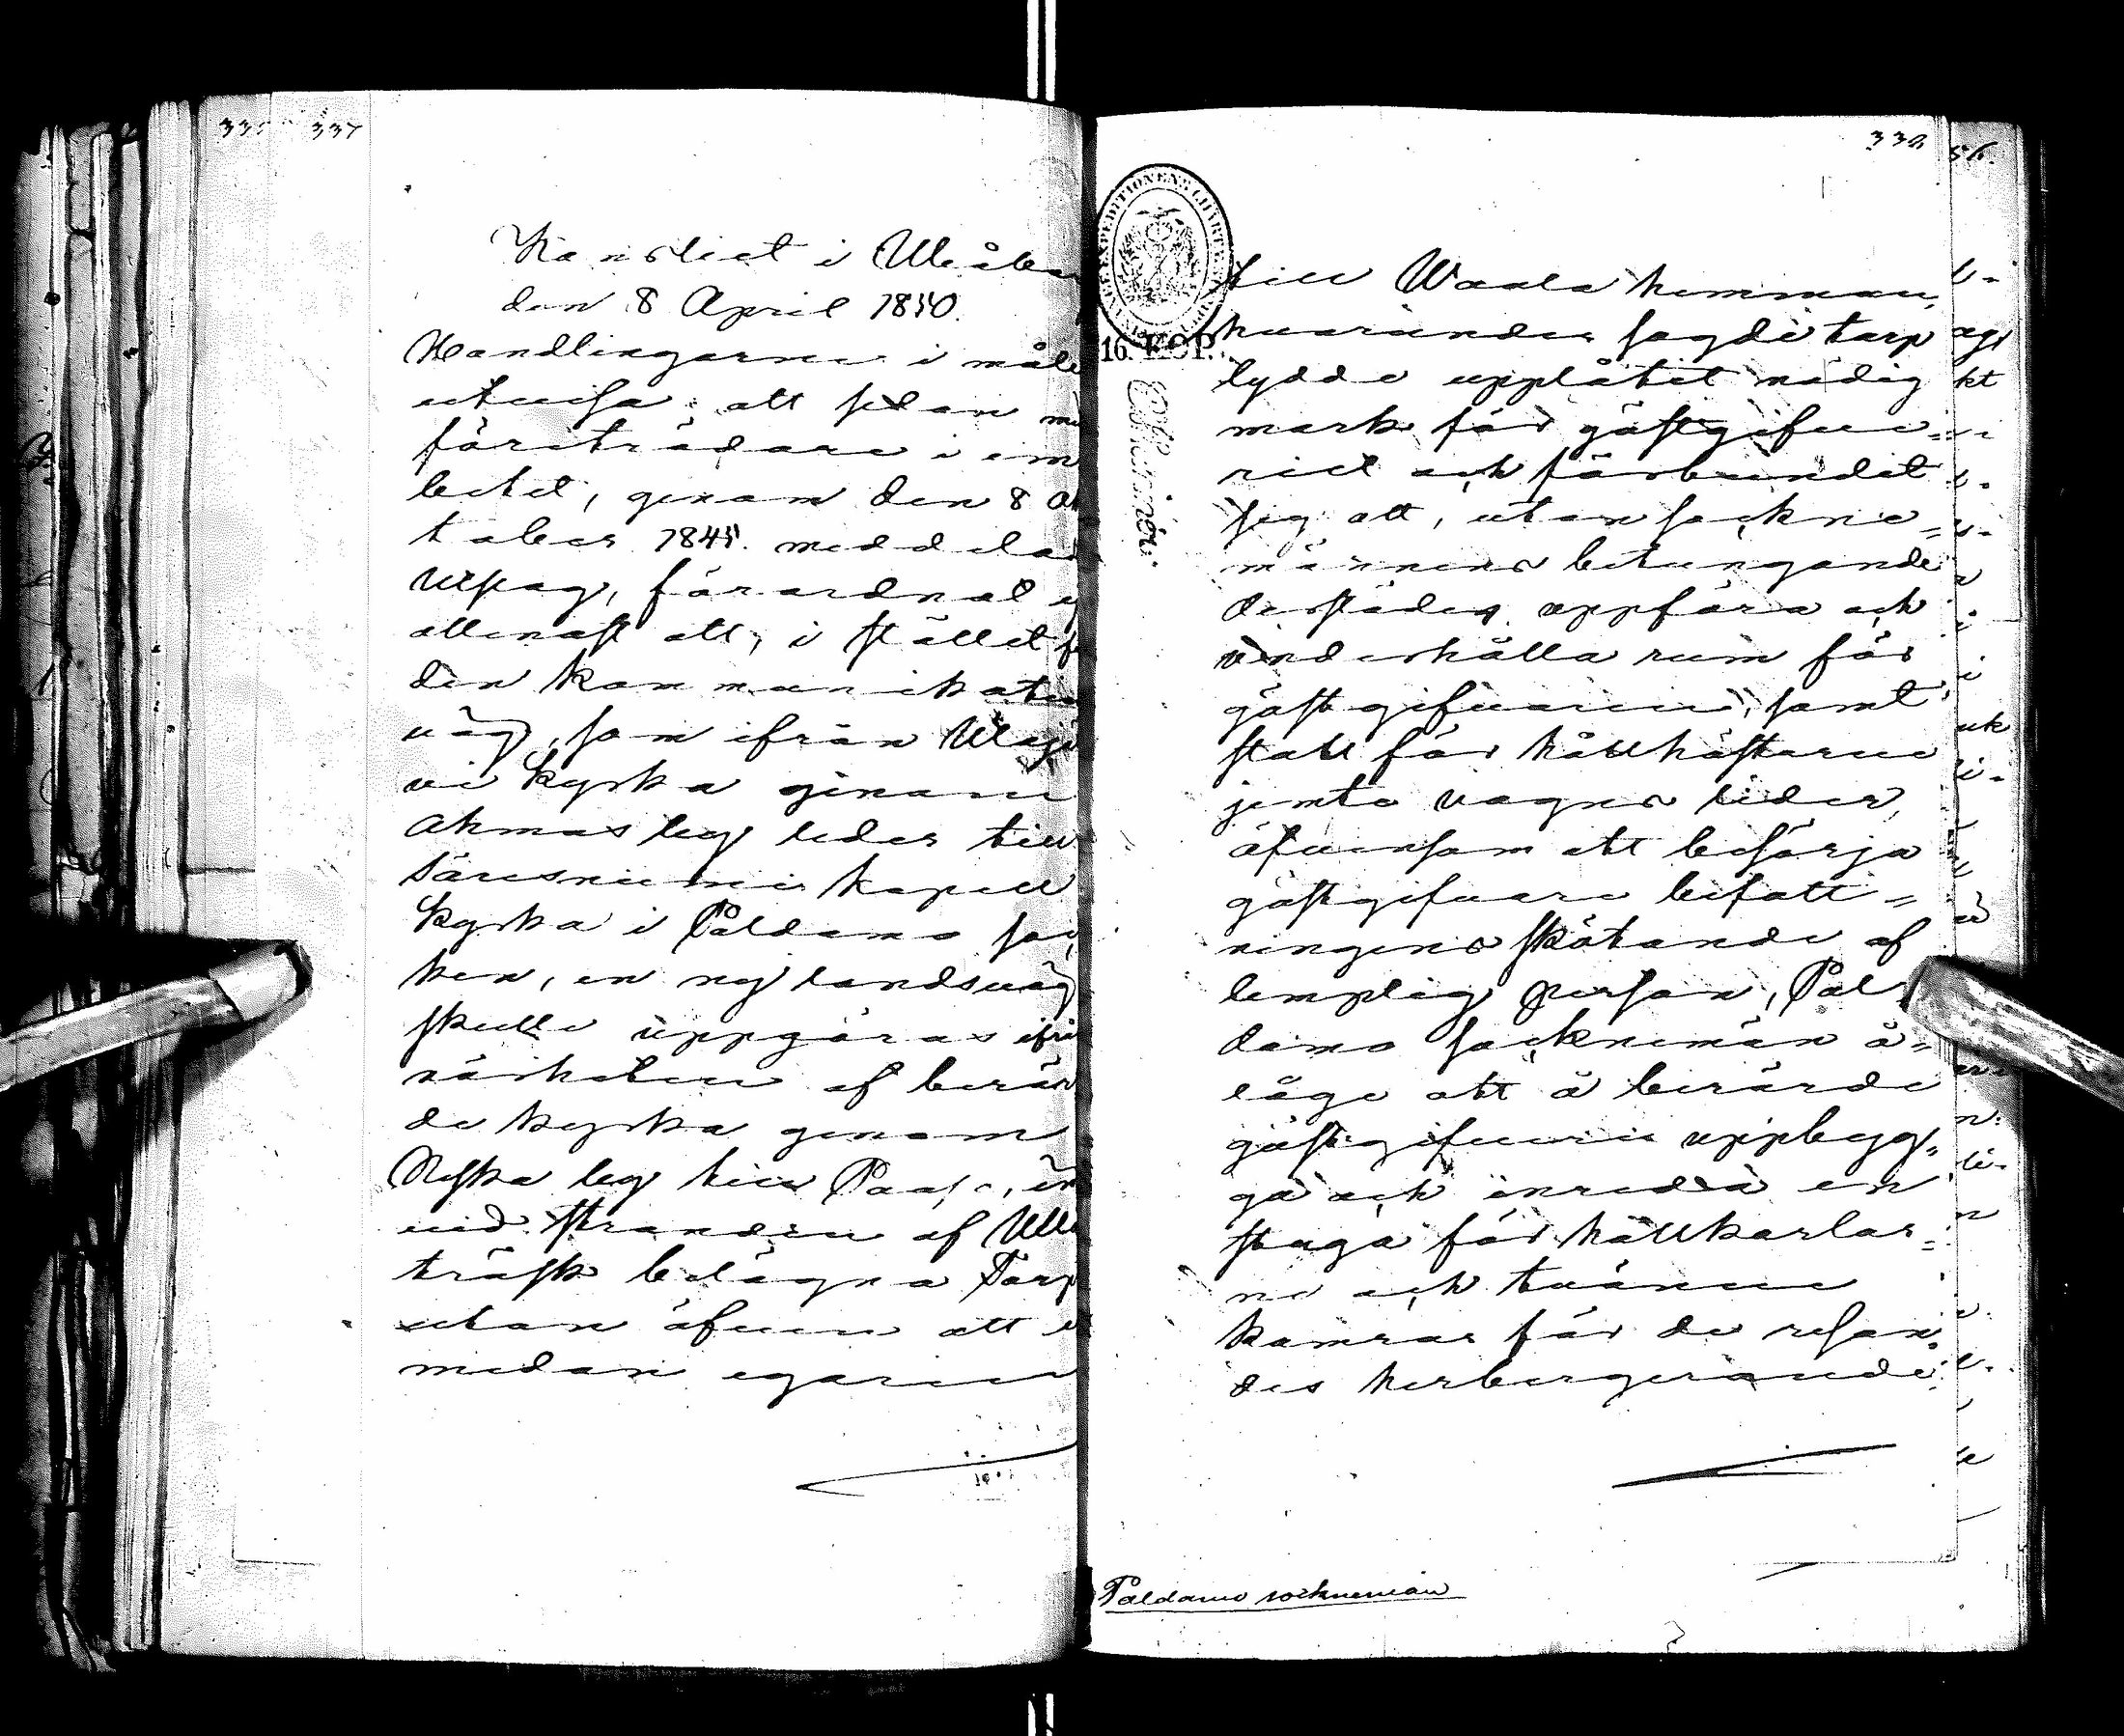 337
Kansliet i Uleåbor
den 8 April 1850.
Handlingarne i måle
utvisa, att sedan
företrädare i em
betet, genom den 8 Ok
tober 1845. meddelad
Utslag, förordnat ej
allenast att, i stället fö
den kommunikations
väg, som ifrån Utajär
vi kyrka genom
Ahmas by leder till
Säresniemi kapell
kyrka i Paldamo soc
ken, en ny landsväg
skulle uppgöras ifrå
närheten af berör
de kyrka genom
Neska by till
vid stranden af Ule
träsk belägna Torp
utan äfven att
medan egaren
338
EXPEDITIONENS CHARTE
16. KOP.
till Waala hemman,
hvarunder sagde torp
lydde upplåtit nödig
mark för gästgifve=
riet och förbundit
sig att, utan sockne=
männens betungande
derstädes uppföra och
underhålla rum för
gästgifvaren, samt
stall för hållhästarne
jemte vagns lider,
äfvensom att besörja
gästgifvare befatt=
ningens skötande af
lämplig person, Pal
damo socknemän å=
låge att å berörde
gästgifveri uppbyg=
ga och inreda en
stuga för hållkarlar=
ne och tvänne
kamrar för de resan=
des herbergerande.
Paldamo socknemän